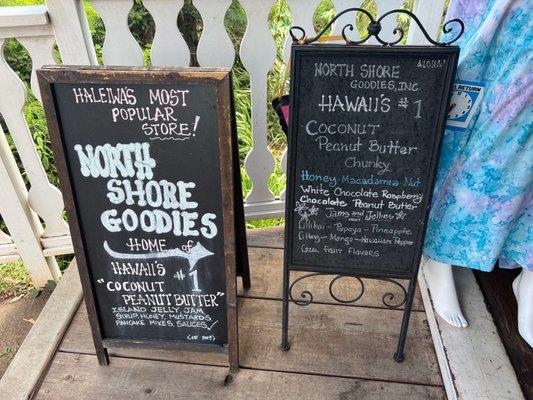 HALEIWA'S MOST
POPULAR
STORE!
NORTH
SHORE
GOODIES
HOME OF
HAWAII'S #1
"COCONUT
PEANUT BUTTER"
ISLAND JELLY, JAM
SYRUP, HONEY, MUSTARDS
PANCAKE MIXES, SAUCES
ALOHA!
NORTH SHORE
GOODIES, INC.
HAWAII'S #1
COCONUT
Peanut Butter
Chunky
Honey-Macadamia Nut
White Chocolate Raspberry
Chocolate Peanut Butter
Jams and Jellies
Lilikoi - Papaya - Pineapple
Mango - Hawaiian Pepper
Local Fruit Flavors
RETURN